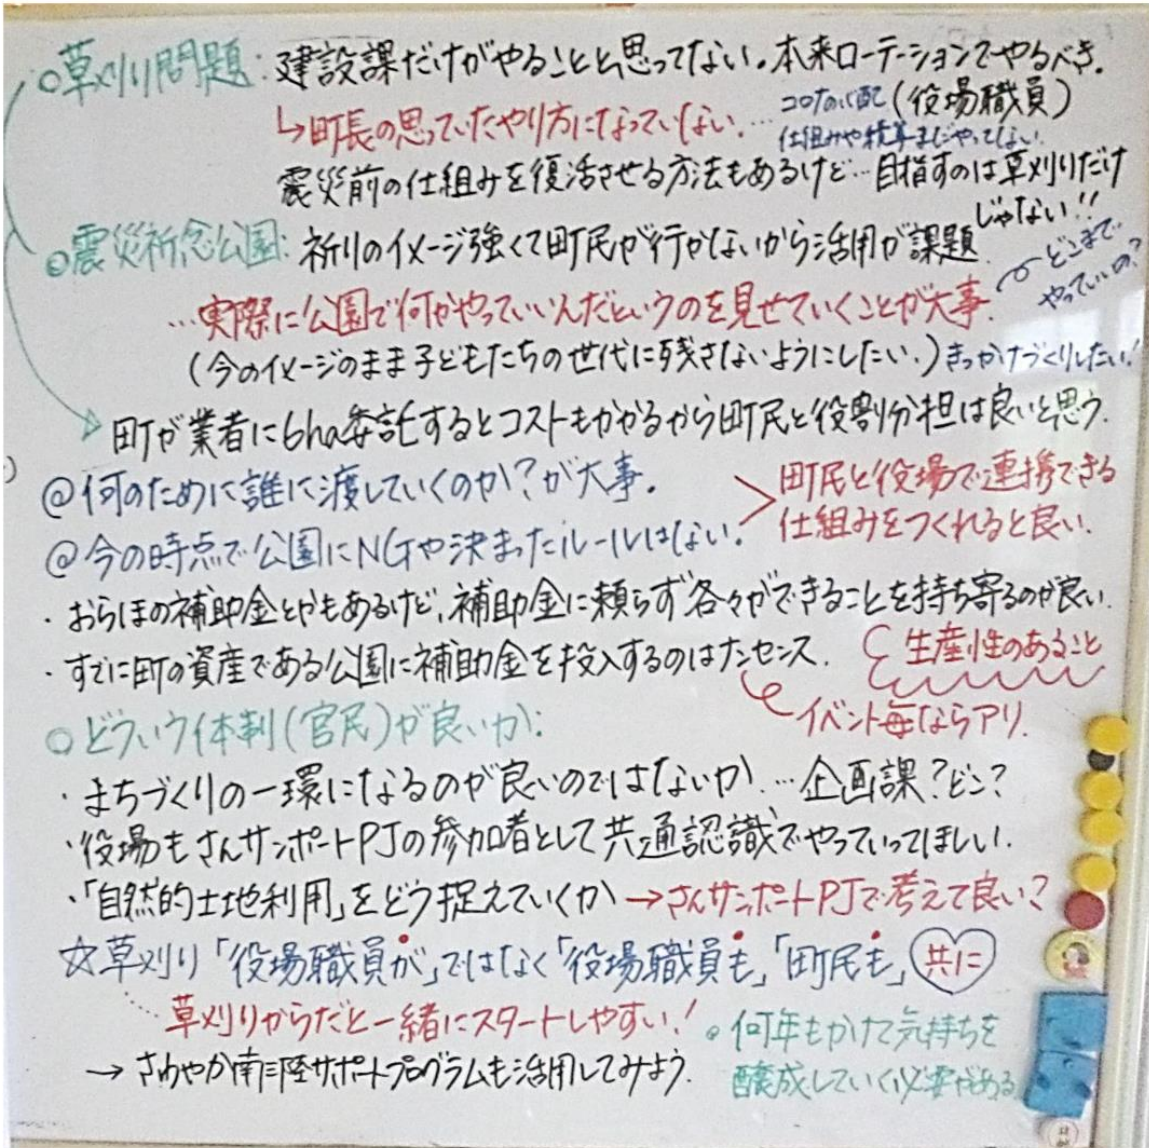 ○草刈り問題：建設課だけがやることと思ってない。本来ローテーションでやるべき。
(役場職員)
↳町長の思っていたやり方になっていない…
コロナの心配
仕組みや積算まじやってしない
震災前の仕組みを復活させる方法もあるけど…目指すのは草刈りだけ
じゃない!!
◎震災祈念公園：祈りのイメージ強くて町民が行かないから活用が課題
どこまで
やっていいの?
…実際に公園で何かやっていいんだというのを見せていくことが大事.
(今のイメージのまま子どもたちの世代に残さないようにしたい.)きっかけづくりしたい!
町が業者に6ha委託するとコストもかかるから町民と役割分担は良いと思う.
@何のために誰に渡していくのか?が大事.
@今の時点で公園にNGや決まったルールはない.
町民と役場で連携できる
仕組みをつくれると良い.
・おらほの補助金とかもあるけど、補助金に頼らず各々ができることを持ち寄るのが良い.
・すでに町の資産である公園に補助金を投入するのはナンセンス.
生産性のあること
イベント毎ならアリ.
○どういう体制(官民)が良いか:
・まちづくりの一環になるのが良いのではないか…企画課?どこ?
・役場もさんサンポートPJの参加者として共通認識でやっていってほしい.
・「自然的土地利用」をどう捉えていくか→さんサンポートPJで考えて良い?
☆草刈り「役場職員が」ではなく「役場職員も」「町民も」共に
草刈りからだと一緒にスタートしやすい!
→さわやか南三陸サポートプログラムも活用してみよう.
。何年もかけて気持ちを
醸成していく必要がある